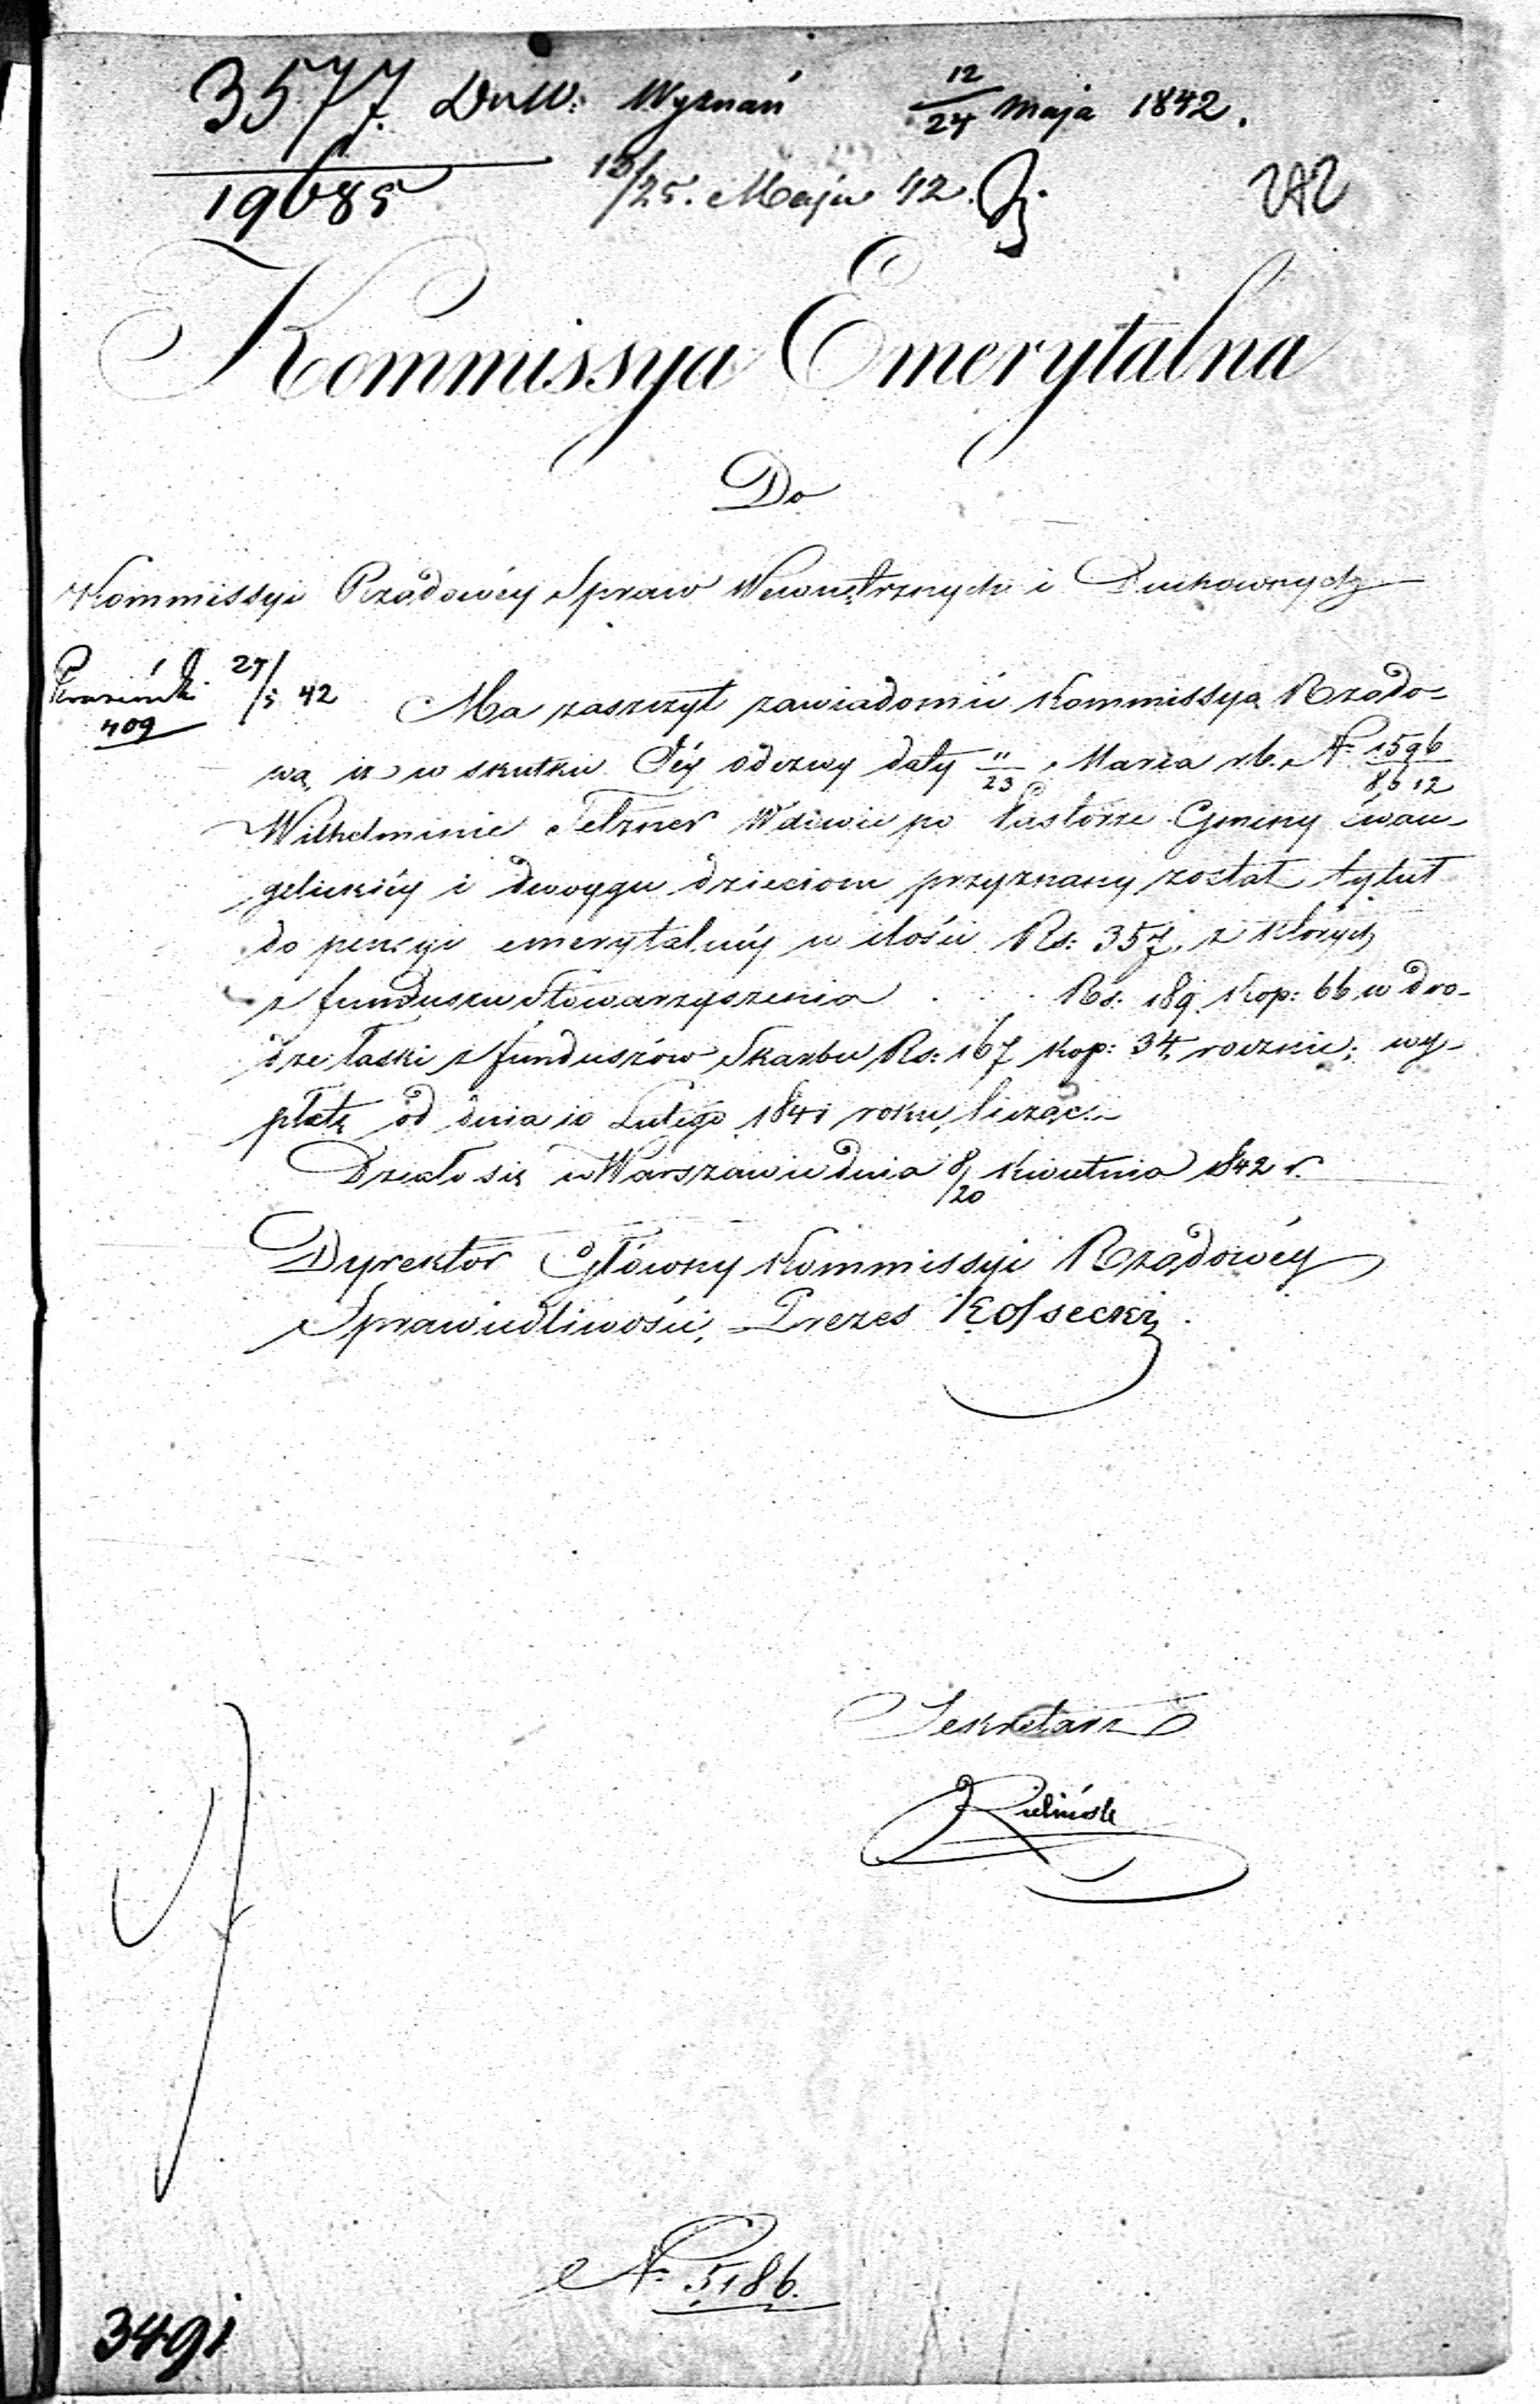 3577. Dnw: Wyznań 12/24 Maja 1842.
19685 13/25. Maja 42. 242
Kommissya Emerytalna
Do
Kommissyi Rządowéy Spraw Wewnętrznych i Duchownych
27/5 42
409
Ma zaszczyt zawiadomić Kommissyą Rządo=
wą, iż w skutku Jéy odezwy daty 11/23 Marca r.b. Nº 1596/8612
Wilhelminie Telzner Wdowie po Pastorze Gminy Ewan-
gelickiéy i dwoygu dzieciom przyznany został tytuł
do pensyi emerytalnéy w ilości Rs: 357. z których
z funduszu Stowarzyszenia . . . Rs: 189 Kop: 66 w dro-
dze łaski z funduszów Skarbu Rs: 167 Kop: 34, rocznie; wy-
płatę od dnia 10 Lutego 1841 roku, licząc.-
Działo się w Warszawie dnia 8/20 Kwietnia 1842 r.
Dyrektor Główny Kommissyi Rządowéy
Sprawiedliwości, Prezes Kossecki.
Sekretarz
Nº 5186.
3491